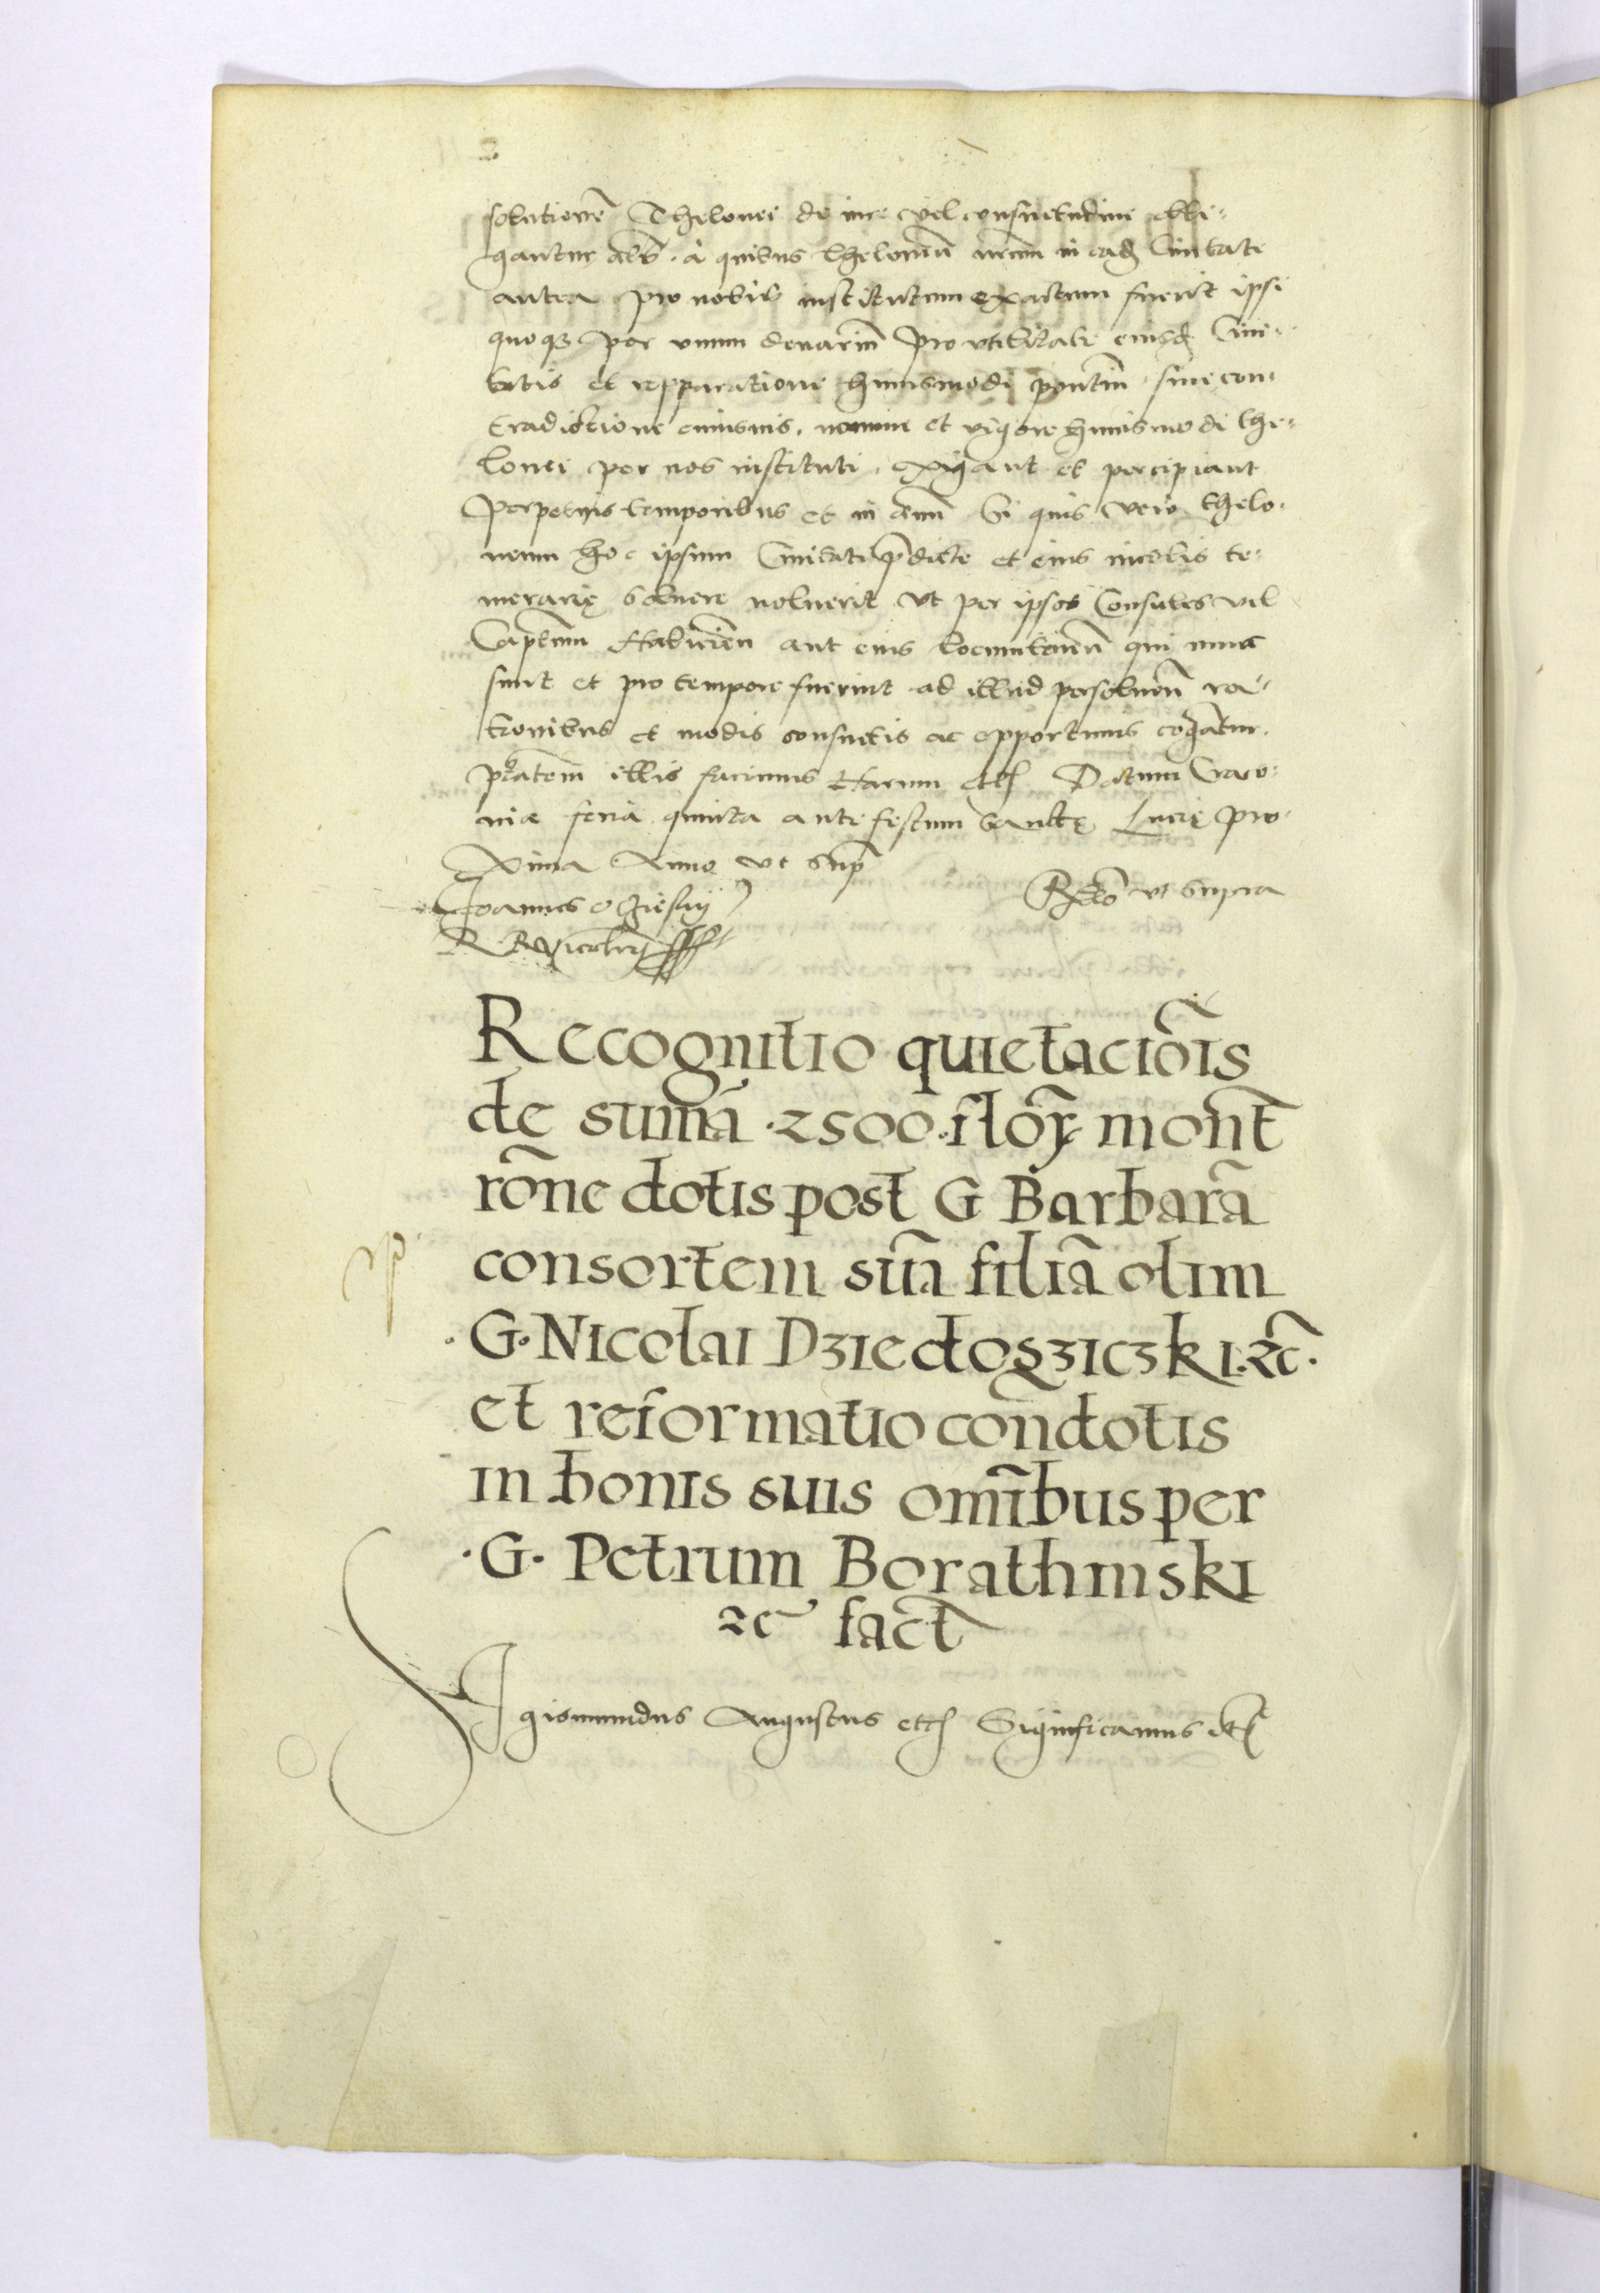 solutionē Thelonei de iure vel consuetudine obli-
gantur
à quibus theloneū nrum in eadē Civitate
antea pro nobis institutum exactum fuerit ipsi
quoqȝ per unum denariū pro utilitate eiusdē Civi-
tatis et repparatione huiusmodi pontiū sine con-
tradictione cuiusvis, nomine et vigore huiusmodi the-
lonei per nos instituti, exigant et percipiant
Perpetuis temporibus et in Si quis vero thelo-
neum hoc ipsum Civitati p̄dicte et eius incolis te-
merarię solvere noluerit ut per ipsos Consules vel
Captēum aut eius locumtenen̄ qui nunc
sunt et pro tempore fuerint ad illud persolven̄ ra-
tionibus et modis consuetis ac opportunis cogātur.
p̄tatem illis facimus Harum etc Datum Craco-
viæ feria quinta ante festum Sanctę Lucię pro-
xima Anno ut supr̄
Joannes Ocziesky
Rel̄o ut supra
R. R. Vicecancellarius
Recognitio quietaciōis
de sum̄a .2500. flor̄ monet̄
rōne dotis post G Barbarā
consortem suā filiā olim
.G. Nicolai Dziedosziczki .ꝛc̄.
et reformatio con̄dotis
in bonis suis om̄ibus per
.G. Petrum Borathinski
ꝛc fact̄
Sigismundus Augustus etc Significamus etc